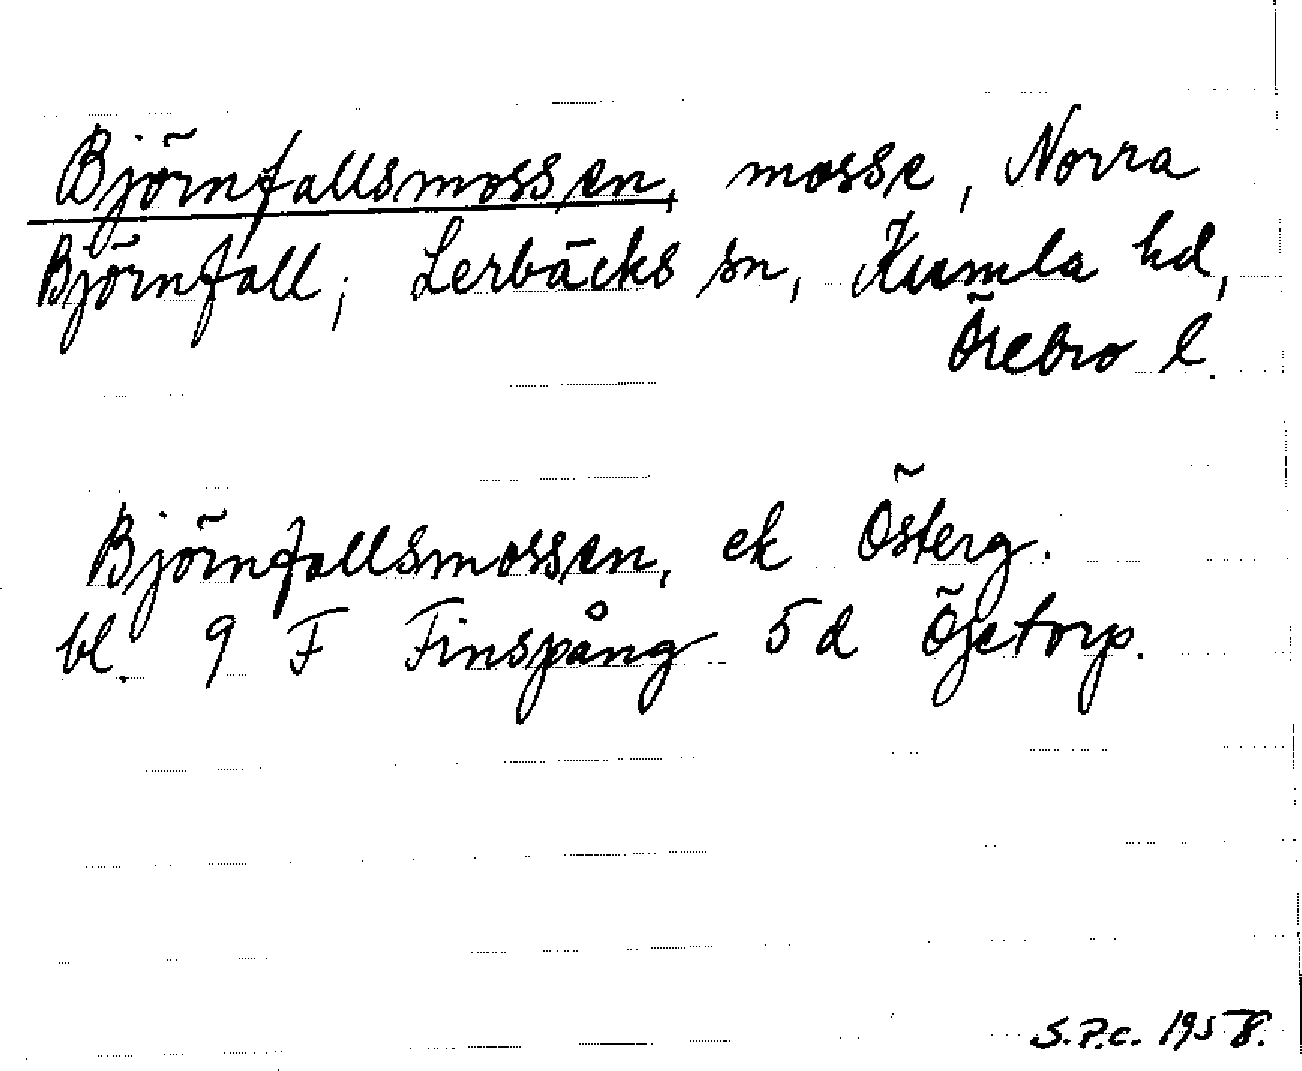 Björnfallsmossen, mosse, Norra
Björnfall, Lerbäcks sn, Kumla hd,
Örebro l.
Björnfallsmossen, ek Österg.
bl. 9 F Finspång 5 d Öjetorp.
S.P.C. 1958.